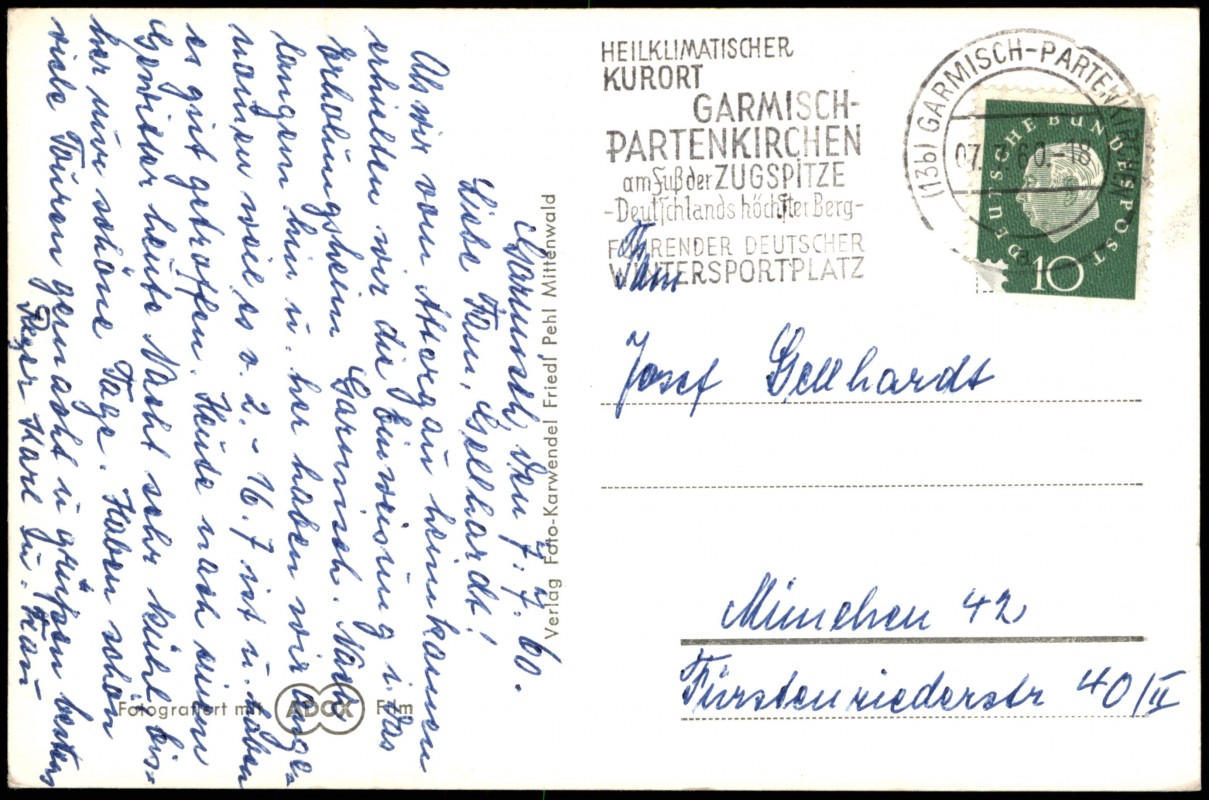 Garmisch, den 7.7.60.
Liebe Fam. Gellhardt!
Als wir vom Attergau heimkamen
erhielten wir die Einweisung i. das
Erholungsheim Garmisch. Nach
langem hin u. her haben wir ange=
nomen weil es v. 2.-16.7 ist u. haben
es gut getroffen. Heute nach einen
Gewitter heute Nacht sehr kühl, bis=
her nur schöne Tage. Haben schon
viele Touren gemacht u grüßen bestens
Karl u. Frau
Verlag Foto-Karwendel Friedl Pehl Mittenwald
Fotografiert mit ADOX Film
HEILKLIMATISCHER
KURORT
GARMISCH-
PARTENKIRCHEN
am Fuß der ZUGSPITZE
-Deutschlands höchster Berg-
FÜHRENDER DEUTSCHER
WINTERSPORTPLATZ
(13b) GARMISCH-PARTENKIRCHEN
07. 7. 60.-18
a
DEUTSCHE BUNDESPOST
10
Fam
Josef Gellhardt
München 42
Fürstenriederstr 40/II